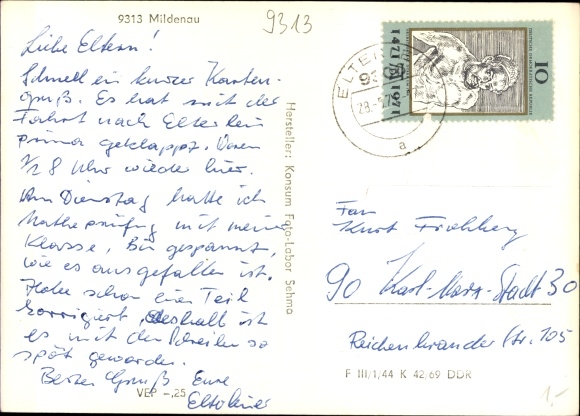 9313 Mildenau
9313
Liebe Eltern!
Schnell ein kurzer Karten-
gruß. Es hat mit der
Fahrt nach Elterlein
prima geklappt. Waren
1/2 8 Uhr wieder hier.
Am Dienstag hatte ich
Matheprüfung mit meiner
Klasse. Bin gespannt,
wie es ausgefallen ist.
Habe schon einen Teil
korrigiert, deshalb ist
es mit dem Schreiben so
spät geworden.
Beste Grüße Eure
VEP -,25
Hersteller: Konsum Foto-Labor Sehma
ELTE
93
28.
a
1471 1971
10
Kurt Frohberg
90 Karl-Marx-Stadt 30
Reichenhainer Str. 105
F III/1/44 K 42/69 DDR
1.-